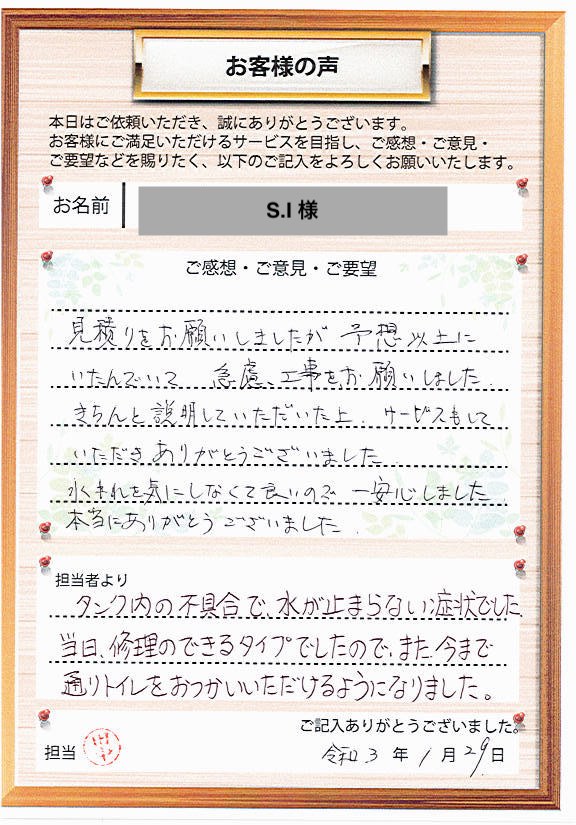 お客様の声
本日はご依頼いただき、誠にありがとうございます。
お客様にご満足いただけるサービスを目指し、ご感想・ご意見・
ご要望などを賜りたく、以下のご記入をよろしくお願いいたします。
お名前 S.I 様
ご感想・ご意見・ご要望
見積りをお願いしましたが 予想以上に
いたんでいて 急慮、工事をお願いしました。
きちんと説明していただいた上、サービスもして
いただきありがとうございました
水もれを気にしなくて良いので 一安心しました。
本当にありがとうございました。
担当者より
タンク内の不具合で、水が止まらない症状でした。
当日、修理のできるタイプでしたので、また、今まで
通りトイレをおつかいいただけるようになりました。
ご記入ありがとうございました。
担当 令和3年1月29日